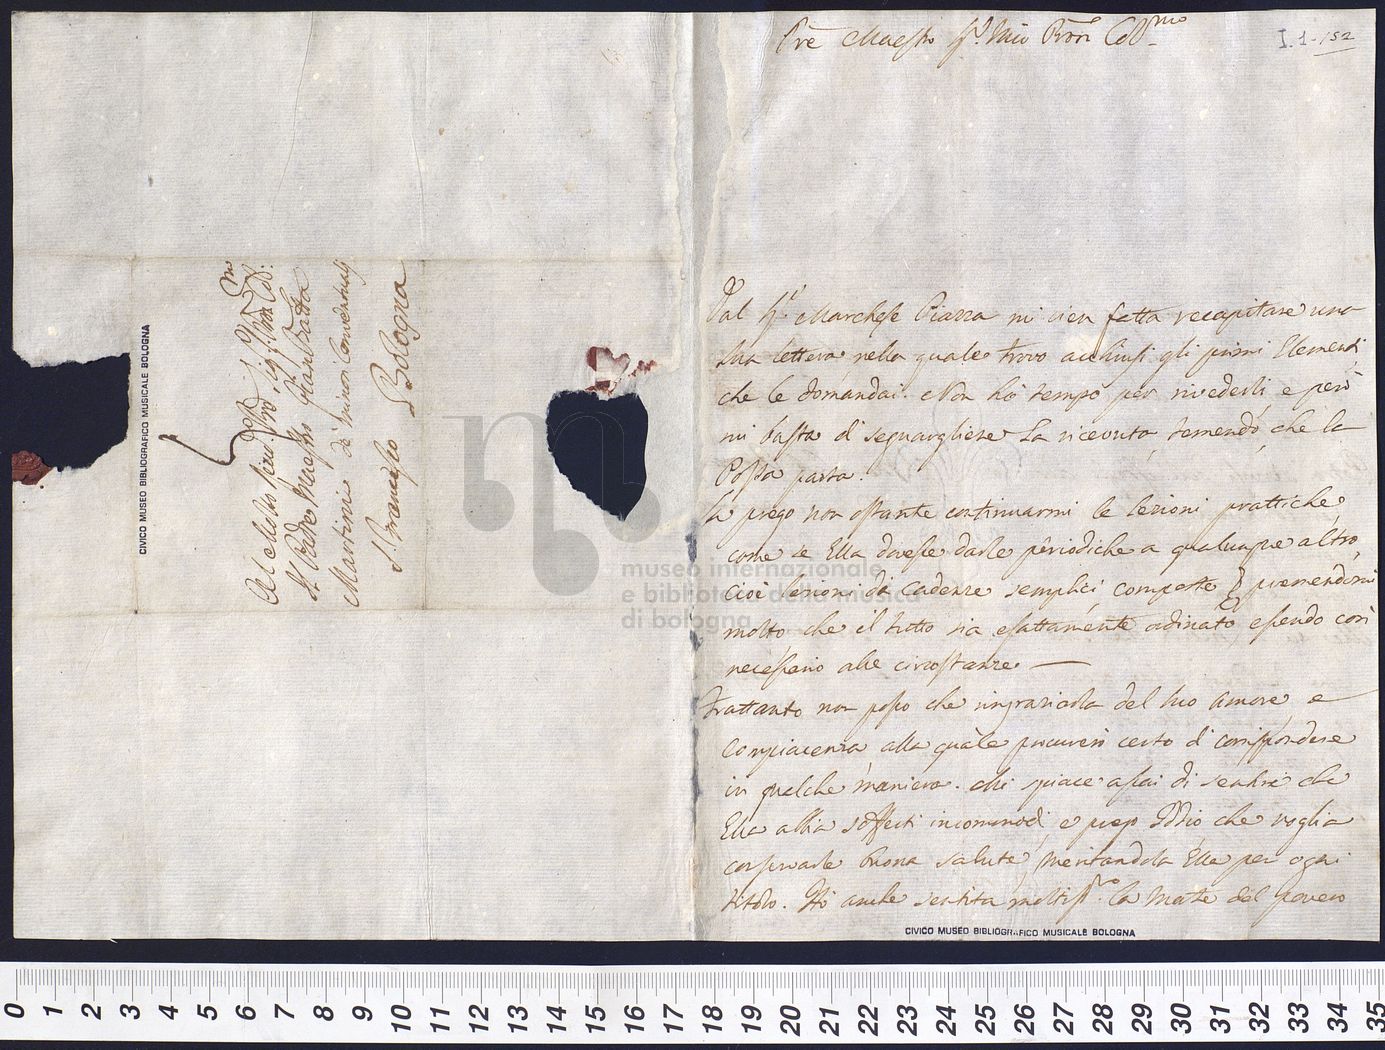 I. 1-152
Pre Maestro Sr. Mio Pron Colmo
Dal Sr. Marchese Piazza mi vien fatta recapitare una
sua lettera nella quale trovo acchiusi gli primi Elementi
che le domandai. Non hò tempo per rivederli e però
mi basta di segnargliene la ricevuta temendo, che la
Posta parta.
La prego non ostante continuarmi le lezioni prattiche,
come se Ella dovesse darle periodiche a qualunque altro,
cioè lezioni di cadenze semplici, composte & premendomi
molto che il tutto sia esattamente ordinato, essendo così
necessario alle circostanze —
Frattanto non posso che ringraziarla del suo Amore, e
Compiacenza alla quàle procurerò certo di corrispondere
in qualche maniera. Mi spiace assai di sentire che
Ella abbia sofferti incommodi, e prego Iddio che voglia
conservarle buona salute, meritandola Ella per ogni
titolo. Hò anche sentita moltissmo la Morte del povero
CIVICO MUSEO BIBLIOGRAFICO MUSICALE BOLOGNA
Al Molto
Il Padre Maestro Giambatta
Martini de minori Conventuali
S. Francesco Bologna
CIVICO MUSEO BIBLIOGRAFICO MUSICALE BOLOGNA
museo internazionale
e biblioteca della musica
di bologna
0 1 2 3 4 5 6 7 8 9 10 11 12 13 14 15 16 17 18 19 20 21 22 23 24 25 26 27 28 29 30 31 32 33 34 35